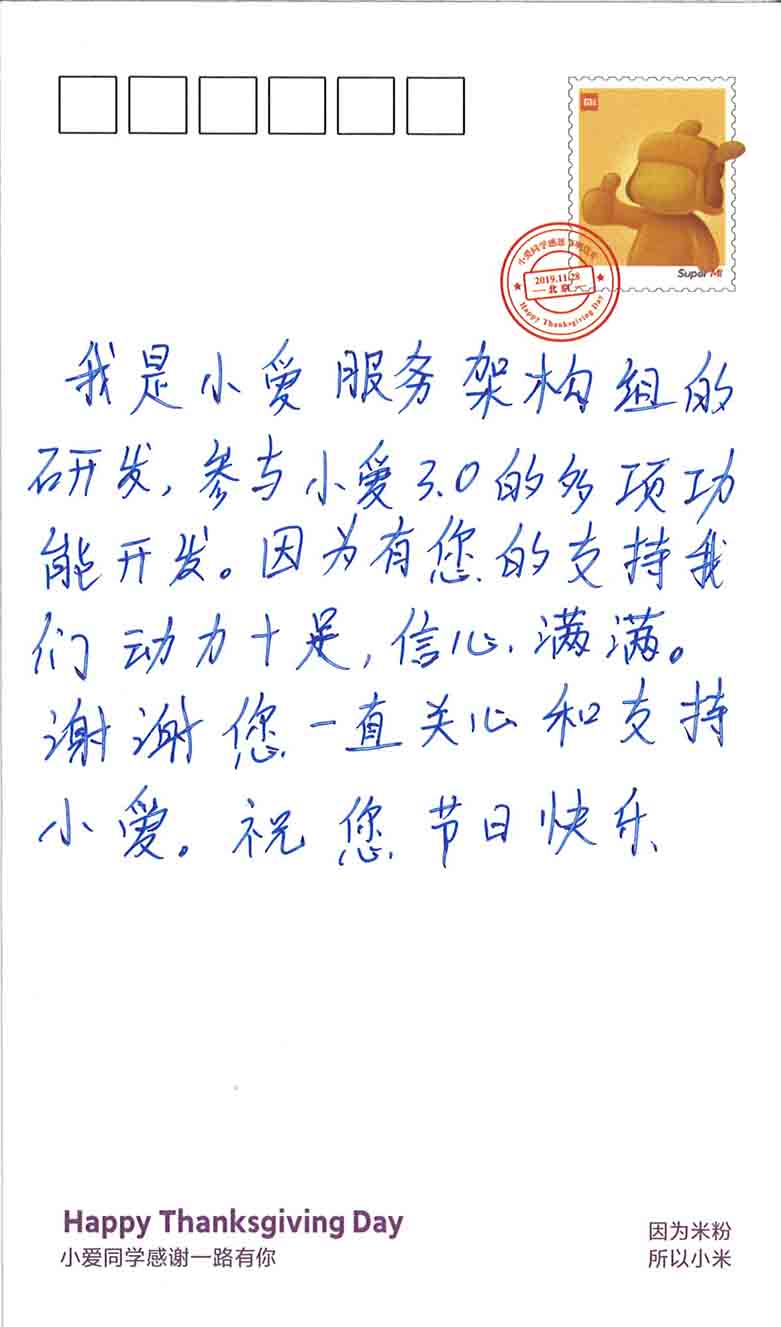 mi
Super Mi
2019.11.28
北京
Happy Thanksgiving Day
我是小爱服务架构组的
研发，参与小爱3.0的多项功
能开发。因为有您的支持我
们动力十足，信心满满。
谢谢您一直关心和支持
小爱。祝您节日快乐
Happy Thanksgiving Day
小爱同学感谢一路有你
因为米粉
所以小米